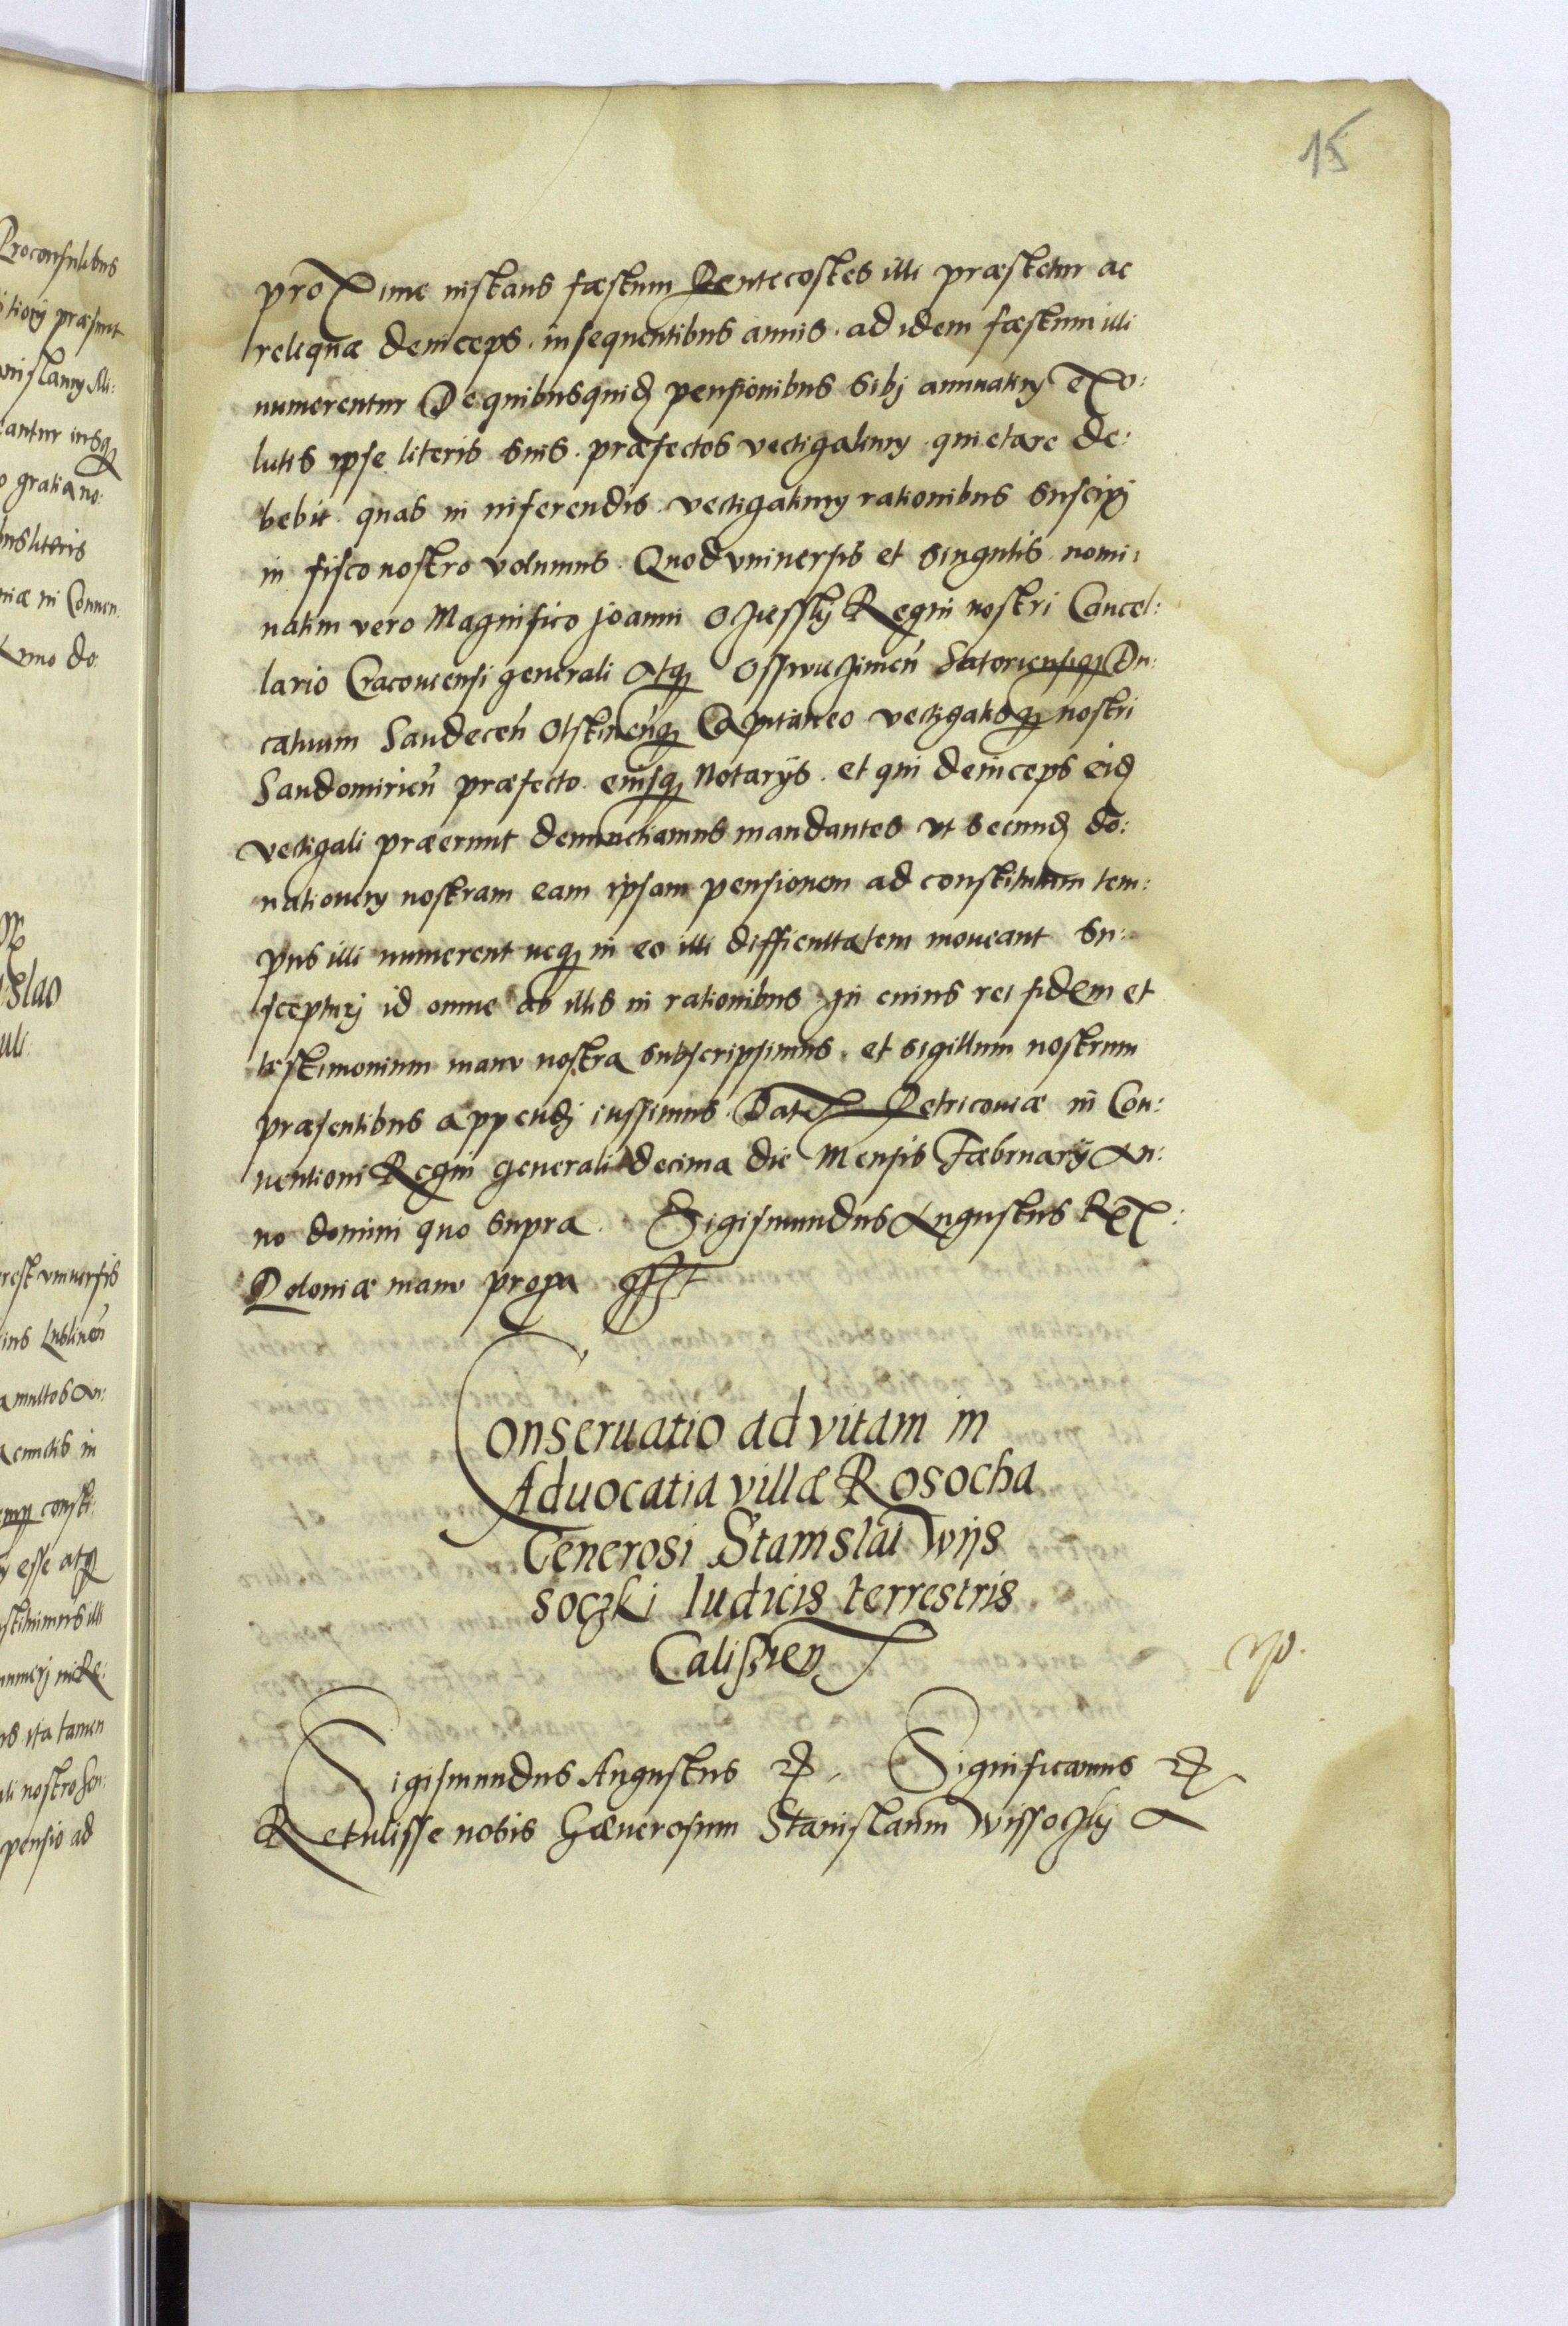 15
proxime instans fæstum Pentecostes illi præstetur ac
reliquæ deinceps insequentibus annis ad idem fæstum illi
numerentur De quibusquidẽ pensionibus sibj annuatim exo:
lutis ipse literis suis præfectos vectigalium quietare de:
bebit quas in inferendis vectigalium rationibus suscipj
in fisco nostro volumus. Quod vniuersis et singulis nomi:
natim vero Magnifico Joanni Oczessky Regni nostri Cancel:
lario Cracouiensi generali atq3 Osswieczimeñ Satoriensiq3 Du:
catuum Sandeceñ Olstineñq3 Capitaneo vectigalisq3 nostri
Sandomirieñ præfecto eiusq3 Notarijs et qui deinceps eidẽ
vectigali præerunt denunctiamus mandantes vt secundũ do:
nationem nostram eam ipsam pensionem ad constitutum tem:
pus illi numerent neq3 in eo illi difficultatem moueant su:
scepturj id omne ab illis in rationibus In cuius rei fidem et
testimonium manu nostra subscripsimus et sigillum nostrum
præsentibus appendj iussimus Datæ Petricouiæ in Con:
uentioni Regni generali decima die Mensis Fæbruarij An:
no domini quo supra Sigismundus Augustus Rex:
Poloniæ manu propa sst
Conseruatio ad vitam in
Aduocatia villæ Rosocha
Generosi Stanislai Wijs
soczki Iudicis terrestris
Calissien
Sigismundus Augustus etc. Significamus etc.
Retulisse nobis Gænerosum Stanislaum Wissoczky